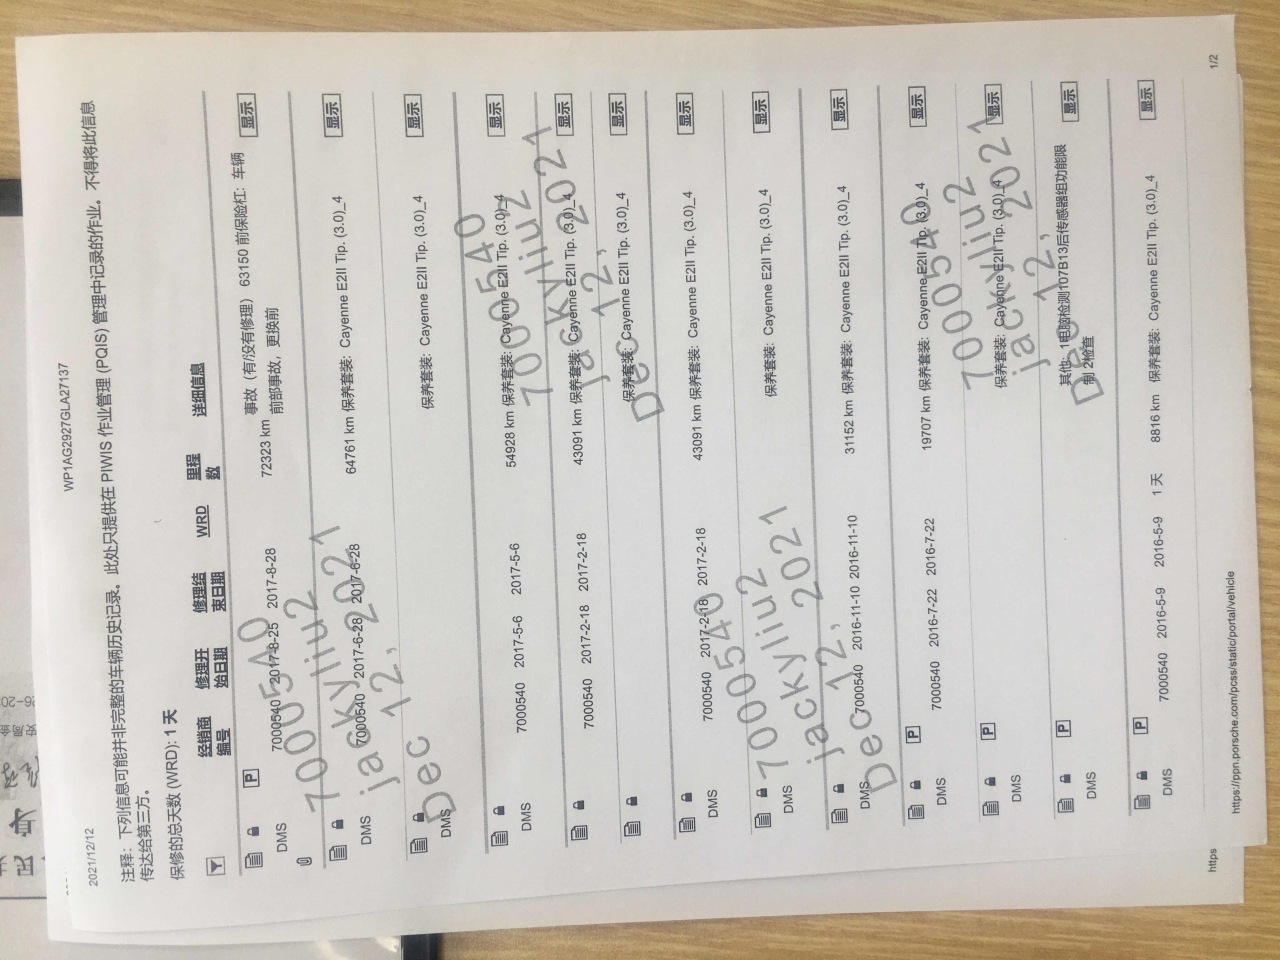 WP1AG2927GLA27137
2021/12/12
注释: 下列信息可能并非完整的车辆历史记录。此处只提供在 PIWIS 作业管理 (PQIS) 管理中记录的作业。不得将此信息
传达给第三方。
保修的总天数 (WRD): 1 天
经销商编号 修理开始日期 修理结束日期 WRD 里程数 详细信息
P 7000540 2017-8-25 2017-8-28 72323 km 事故（有/没有修理） 63150 前保险杠: 车辆 显示
DMS 前部事故, 更换前
7000540 2017-6-28 2017-6-28 64761 km 保养套装: Cayenne E2II Tip. (3.0)_4 显示
DMS
保养套装: Cayenne E2II Tip. (3.0)_4 显示
DMS
7000540 2017-5-6 2017-5-6 54928 km 保养套装: Cayenne E2II Tip. (3.0)_4 显示
DMS
7000540 2017-2-18 2017-2-18 43091 km 保养套装: Cayenne E2II Tip. (3.0)_4 显示
保养套装: Cayenne E2II Tip. (3.0)_4 显示
7000540 2017-2-18 2017-2-18 43091 km 保养套装: Cayenne E2II Tip. (3.0)_4 显示
DMS
保养套装: Cayenne E2II Tip. (3.0)_4 显示
DMS
7000540 2016-11-10 2016-11-10 31152 km 保养套装: Cayenne E2II Tip. (3.0)_4 显示
DMS
P 7000540 2016-7-22 2016-7-22 19707 km 保养套装: Cayenne E2II Tip. (3.0)_4 显示
DMS
P 保养套装: Cayenne E2II Tip. (3.0)_4 显示
DMS
P 其他: 1电脑检测107B13后传感器组功能限 显示
DMS 制 2检查
P 7000540 2016-5-9 2016-5-9 1 天 8816 km 保养套装: Cayenne E2II Tip. (3.0)_4 显示
DMS
7000540
jackyliu2
Dec 12, 2021
7000540
jackyliu2
Dec 12, 2021
7000540
jackyliu2
Dec 12, 2021
7000540
jackyliu2
Dec 12, 2021
https://ppn.porsche.com/pcss/static/portal/vehicle
1/2
https